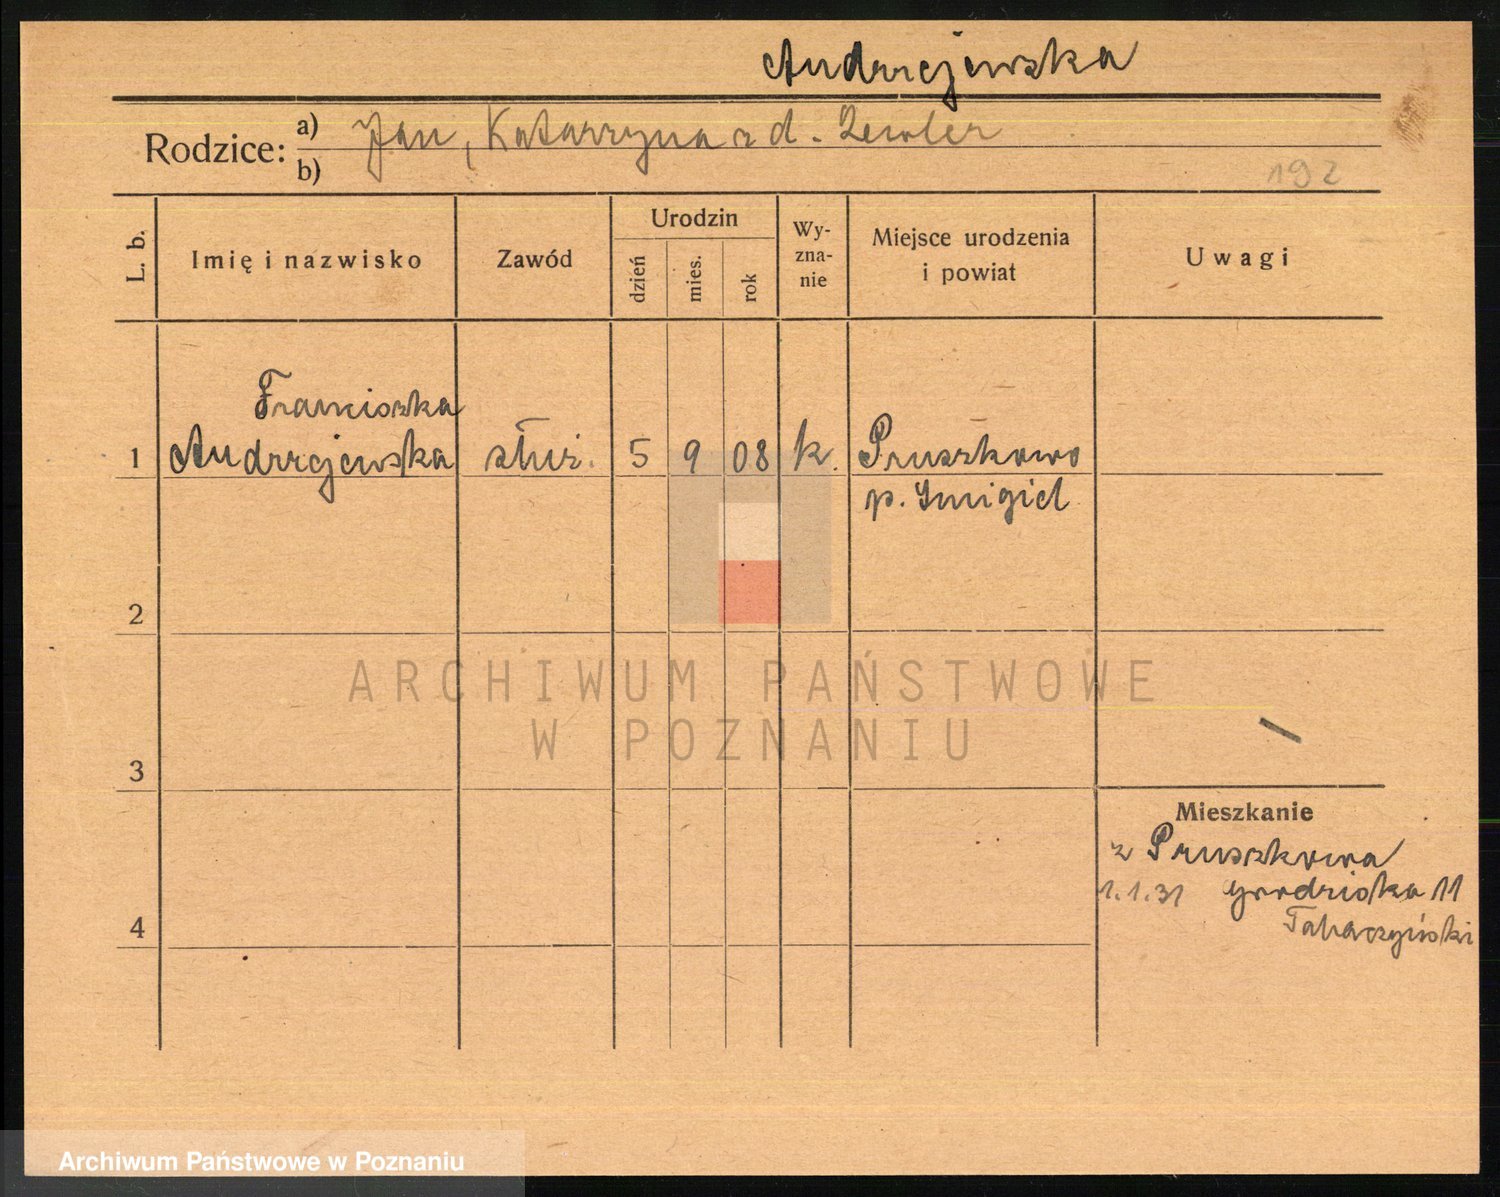 Andrzejewska
Rodzice: a) Jan, Katarzyna z d.
b)
192
L. b.
Imię i nazwisko
Zawód
Urodzin
dzień
mies.
rok
Wy-
zna-
nie
Miejsce urodzenia
i powiat
Uwagi
Franciszka
1 Andrzejewska służ. 5 9 08 k. Pruszkowo
p. Śmigiel
2
3
4
ARCHIWUM PAŃSTWOWE
W POZNANIU
Mieszkanie
z Pruszkowa
1.1.31 Grodziska 11
Archiwum Państwowe w Poznaniu